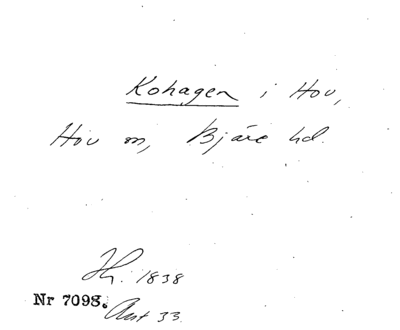 Kohagen i Hov,
Hov m, Bjäre hd.
1838
Nr 7098.
Ant 33